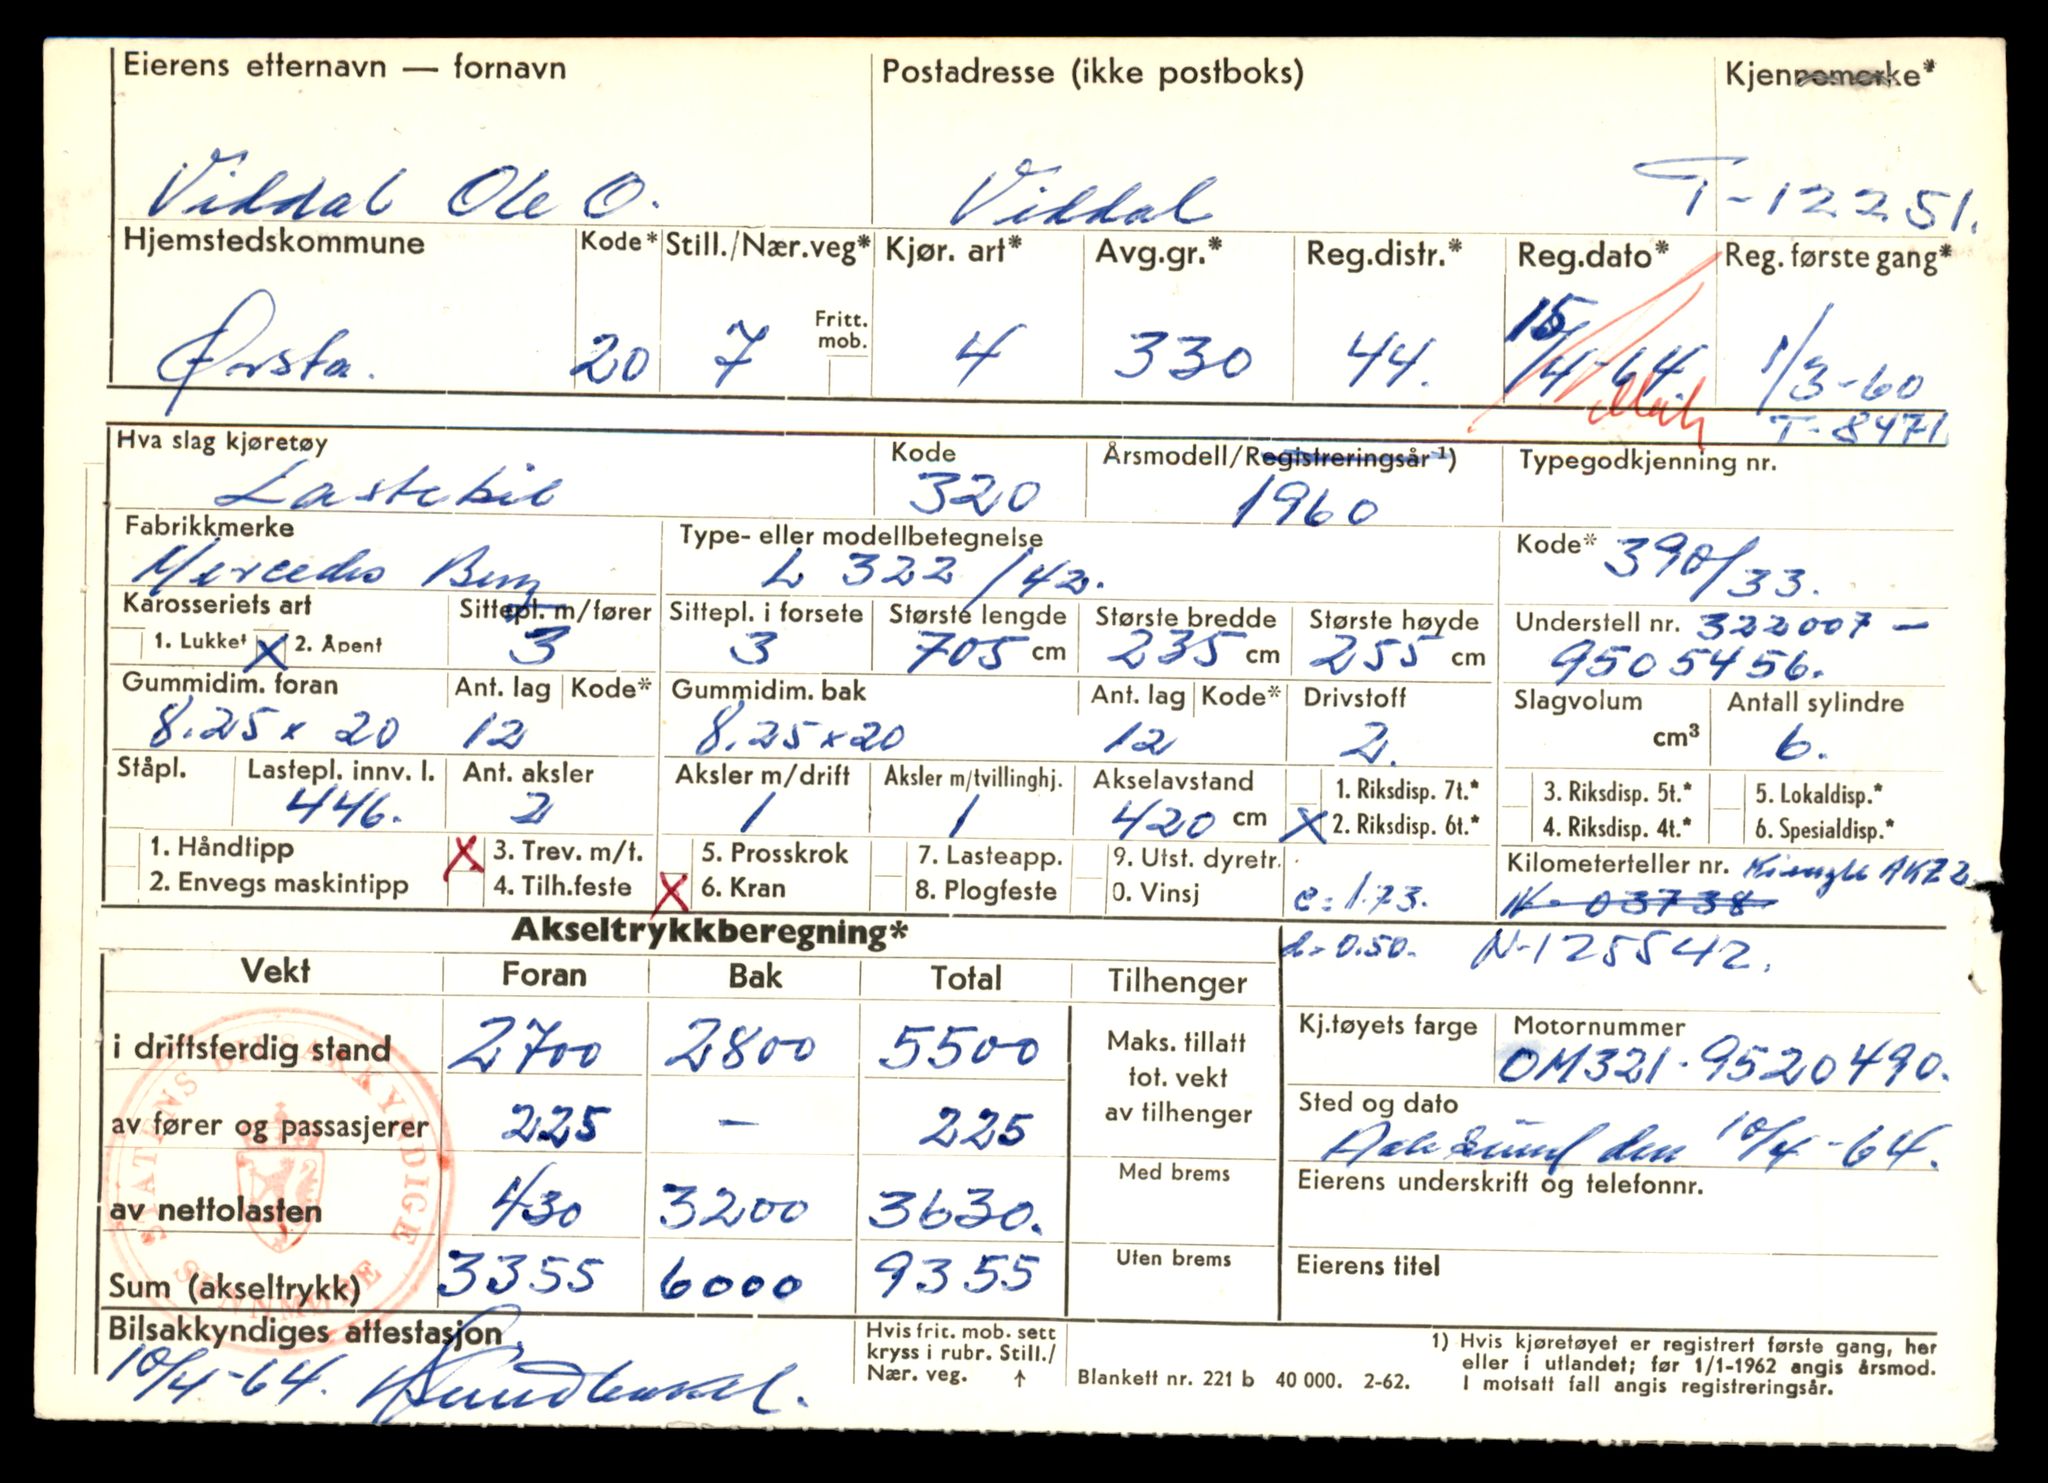 Eierens etternavn — fornavn Postadresse (ikke postboks) Kjennemerke*
Viddal Ole O. Viddal T-12251.
Hjemstedskommune Kode* Still./Nær.veg* Kjør. art* Avg.gr.* Reg.distr.* Reg.dato* Reg. første gang*
Fritt. mob.
Ørsta. 20 7 4 330 44. 15/4-64. 1/3-60
T-8471
Hva slag kjøretøy Kode Årsmodell/Registreringsår 1) Typegodkjenning nr.
Lastebil 320 1960
Fabrikkmerke Type- eller modellbetegnelse Kode* 390/33.
Mercedes Benz L 322/42.
Karosseriets art Sittepl. m/fører Sittepl. i forsete Største lengde Største bredde Største høyde Understell nr. 322007-
1. Lukket X 2. Åpent 3 3 705 cm 235 cm 255 cm 9505456.
Gummidim. foran Ant. lag Kode* Gummidim. bak Ant. lag Kode* Drivstoff Slagvolum Antall sylindre
8.25 x 20 12 8.25 x 20 12 2. cm³ 6.
Ståpl. Lastepl. innv. l. Ant. aksler Aksler m/drift Aksler m/tvillinghj. Akselavstand 1. Riksdisp. 7t.* 3. Riksdisp. 5t.* 5. Lokaldisp.*
446. 2 1 1 420 cm X 2. Riksdisp. 6t.* 4. Riksdisp. 4t.* 6. Spesialdisp.*
1. Håndtipp X 3. Trev. m/t. 5. Prosskrok 7. Lasteapp. 9. Utst. dyretr. Kilometerteller nr. Kienzle AKZ 2
2. Envegs maskintipp 4. Tilh.feste X 6. Kran 8. Plogfeste 0. Vinsj c = 1.73. N-03738
Akseltrykkberegning* d = 0.50. N-125542.
Vekt Foran Bak Total Tilhenger
Kj.tøyets farge Motornummer
i driftsferdig stand 2700 2800 5500 Maks. tillatt tot. vekt av tilhenger OM321-9520490.
Sted og dato
av fører og passasjerer 225 — 225 Aalesund den 10/4-64.
Med brems Eierens underskrift og telefonnr.
av nettolasten 430 3200 3630.
Uten brems Eierens titel
Sum (akseltrykk) 3355 6000 9355
STATENS BILSAKKYNDIGE SUNNMØRE
Bilsakkyndiges attestasjon
10/4-64.
Hvis frit. mob. sett
kryss i rubr. Still./
Nær. veg. ↑
Blankett nr. 221 b 40 000. 2-62.
1) Hvis kjøretøyet er registrert første gang, her
eller i utlandet; før 1/1-1962 angis årsmod.
I motsatt fall angis registreringsår.